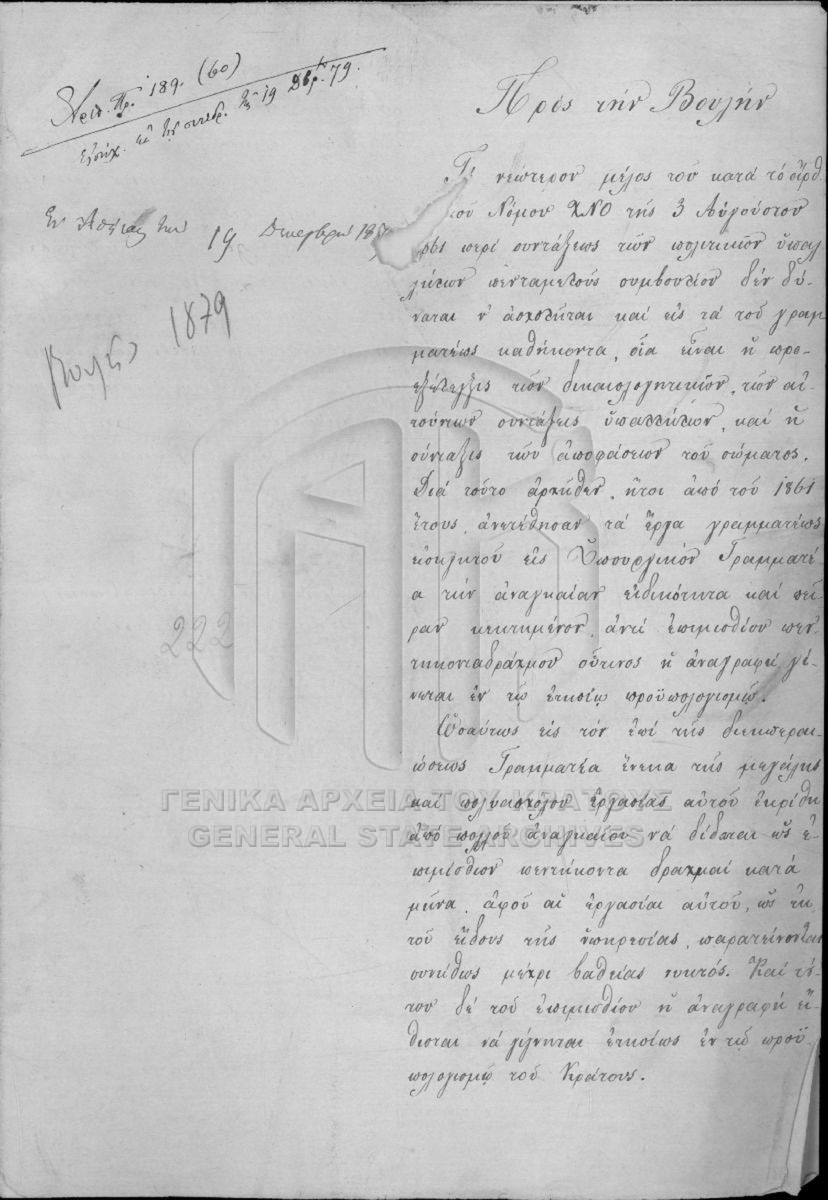 Αριθ. Πρ. 189. (60)
τη 19 Δβρ. 79.
Ἐν Ἀθήναις τῃ 19 Δεκεμβρίου 187
Βουλῆς 1879
222
Πρός τήν Βουλήν
Τό νεώτερον μέλος τοῦ κατά τό ἄρθ.
τοῦ Νόμου ΧΝΘ τῆς 3 Αὐγούστου
1861 περί συντάξεως τῶν πολιτικῶν ὑπαλ
λήλων πενταμελοῦς συμβουλίου δέν δύ-
ναται ν' ἀσχολῆται καί εἰς τά τοῦ γραμ
ματέως καθήκοντα, οἷα εἶναι ἡ προ-
εξέλεγξις τῶν δικαιολογητικῶν, τῶν αἰ-
τούντων συντάξεις ὑπαλλήλων, καί ἡ
σύνταξις τῶν ἀποφάσεων τοῦ σώματος.
Διά τοῦτο ἀρχῆθεν, ἤτοι ἀπό τοῦ 1861
ἔτους, ἀνετέθησαν τά ἔργα γραμματέως
εἰσηγητοῦ εἰς Ὑπουργικόν Γραμματέ-
α τήν ἀναγκαίαν εἰδικότητα καί πεῖ-
ραν κεκτημένον, ἀντί ἐπιμισθίου πεν-
τηκονταδράχμου οὗτινος ἡ ἀναγραφή γί-
νεται ἐν τῷ ἐτησίῳ προϋπολογισμῷ.
Ὡσαύτως εἰς τόν ἐπί τῆς διεκπεραι-
ώσεως Γραμματέα ἕνεκα τῆς μεγάλης
καί πολυασχόλου ἐργασίας αὐτοῦ ἐκρίθη
ἀπό πολλοῦ ἀναγκαῖον νά δίδωται ὡς ἐ-
πιμίσθιον πεντήκοντα δραχμαί κατά
μῆνα, ἀφοῦ αἱ ἐργασίαι αὐτοῦ, ὡς ἐκ
τοῦ εἴδους τῆς ὑπηρεσίας, παρατείνονται
συνήθως μέχρι βαθείας νυκτός. Καί τού-
του δέ τοῦ ἐπιμισθίου ἡ ἀναγραφή εἴ-
θισται νά γίγνηται ἐτησίως ἐν τῷ προϋ-
πολογισμῷ τοῦ Κράτους.
ΓΕΝΙΚΑ ΑΡΧΕΙΑ ΤΟΥ ΚΡΑΤΟΥΣ
GENERAL STATE ARCHIVES